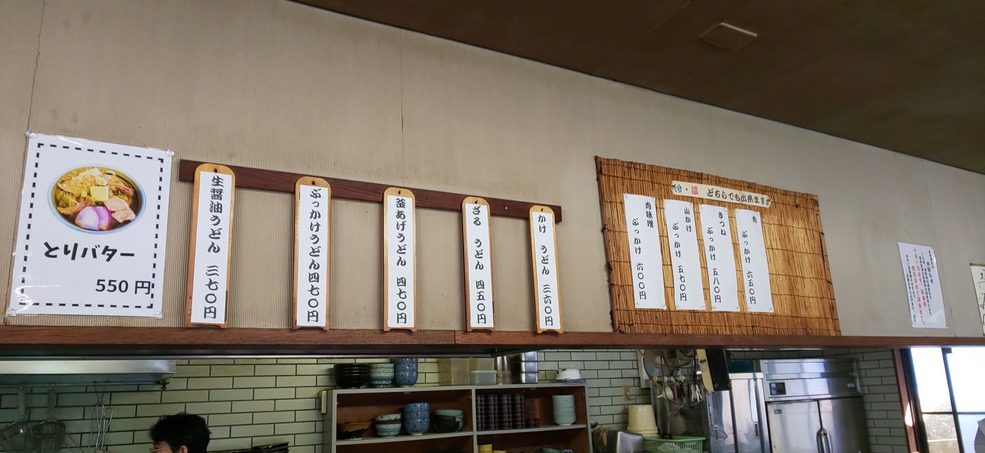 とりバター
550 円
生醤油うどん 三七〇円
ぶっかけうどん四七〇円
釜あげうどん 四七〇円
ざる うどん 四五〇円
かけ うどん 三六〇円
冷・温 どちらでも出来ます
肉味噌 ぶっかけ 六〇〇円
山かけ ぶっかけ 五七〇円
きつね ぶっかけ 五八〇円
肉 ぶっかけ 六五〇円